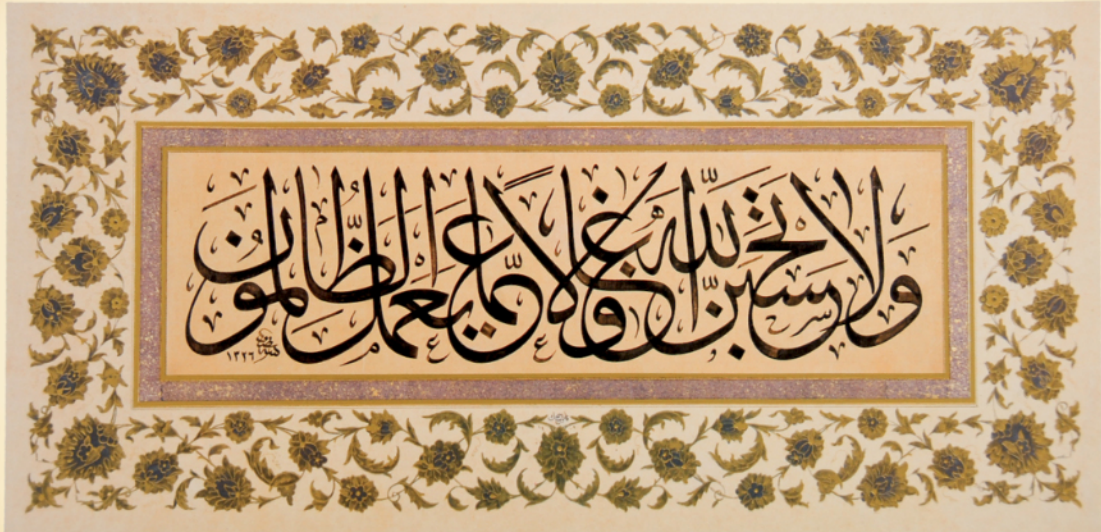 ولا تحسبنّ الله غافلاً عمّا يعمل الظّالمون
١٣٢٦